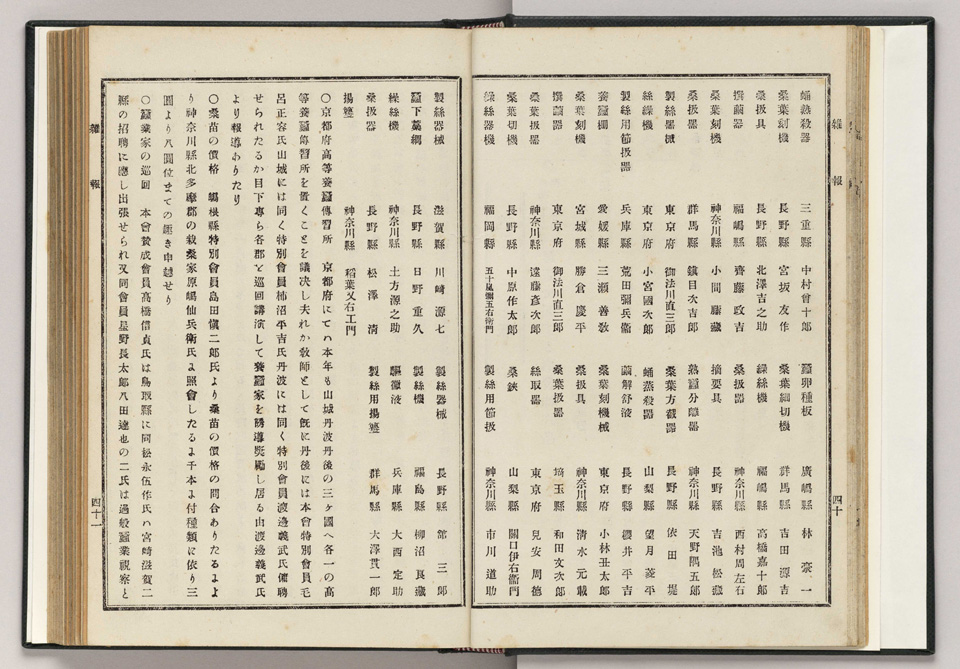 雜報
四十
蛹熱殺器 三重縣 中村會十郎 蠶卵種板 廣嶋縣 林豪一
桑葉刻機 長野縣 宮坂友作 桑葉細切機 群馬縣 吉田源吉
桑扱具 長野縣 北澤吉之助 繰絲機 福嶋縣 高橋嘉十郎
撰繭器 福嶋縣 齊藤政吉 桑扱器 神奈川縣 西村周左右
桑葉刻機 神奈川縣 小間藤藏 摘要具 長野縣 吉池松藏
桑扱器 群馬縣 鎭目次吉郎 熟蠶分離器 神奈川縣 天野隅五郎
製絲器械 東京府 御法川直三郎 桑葉方截器 長野縣 依田堤
絲繰機 東京府 小宮國次郎 蛹蒸殺器 山梨縣 望月菱平
製絲用節扱器 兵庫縣 荒田彌兵衞 繭解舒液 長野縣 櫻井平吉
養蠶棚 愛媛縣 三瀬善敎 桑葉刻機械 東京府 小林丑太郎
桑葉刻機 宮城縣 勝倉慶平 桑扱具 神奈川縣 清水元載
撰繭器 東京府 御法川直三郎 桑葉扱器 埼玉縣 和田文次郎
桑葉扱器 神奈川縣 遠藤彦次郎 絲取器 東京府 兒安周德
桑葉切機 長野縣 中原作太郎 桑鋏 山梨縣 關口伊右衞門
繰絲器機 福岡縣 五十嵐彌五右衞門 製絲用節扱 神奈川縣 市川道助
製絲器械 滋賀縣 川崎源七 製絲器械 長野縣 舘三郎
蠶下藁網 長野縣 日野重久 製絲機 福島縣 柳沼良藏
繰絲機 神奈川縣 土方源之助 驅蠅液 兵庫縣 大西定助
桑扱器 長野縣 松澤清 製絲用揚籰 群馬縣 大澤貫一郎
揚籰 神奈川縣 稻葉又右工門
〇京都府高等養蠶傳習所 京都府にてハ本年も山城丹波丹後の三ヶ國へ各一の高
等養蠶傳習所を置くことを議决し夫れか敎師として旣に丹後には本會特別會員毛
呂正容氏山城には同く特別會員柿沼平吉氏丹波には同く特別會員渡邊義武氏傭聘
せられたるか目下專ら各郡を巡回講演して養蠶家を誘導奬勵し居る由渡邊義武氏
より報導ありたり
〇桑苗の價格 嶋根縣特別會員島田愼二郎氏より桑苗の價格の問合ありたるより
り神奈川縣北多摩郡の栽桑家原嶋仙兵衛氏ゟ照會したるよ千本よ付種類に依り三
圓より八圓位まての趣き申越せり
〇蠶業家の巡回 本會賛成會員髙橋信貞氏は鳥取縣に同松永伍作氏ハ宮崎滋賀二
縣の招聘に應し出張せられ又同會員星野長太郎八田達也の二氏は過般蠶業視察と
雜報
四十一